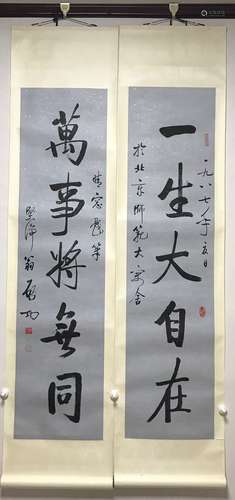 一生大自在
一九八七年夏日
於北京師範大學寓舍
萬事將無同
晴窗
筆
堅淨翁啟功